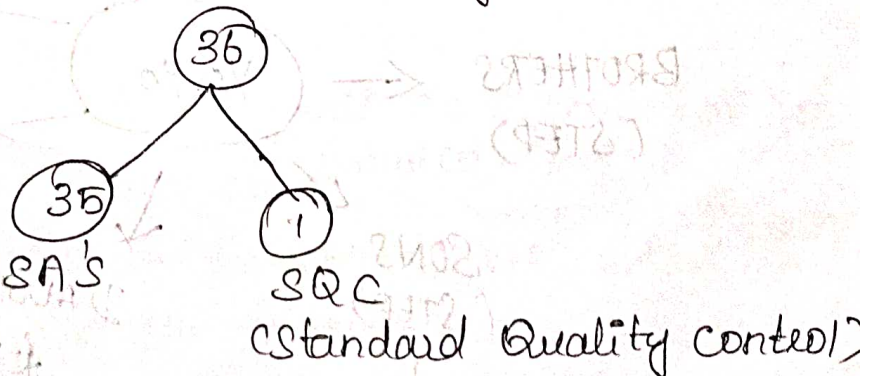 36
35
1
SA'S
SQC
(Standard Quality Control)